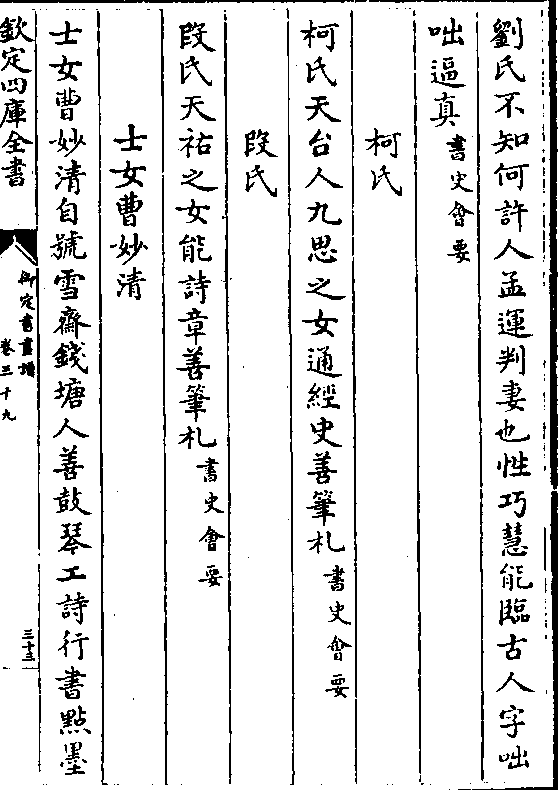 劉氏不知何許人孟運判妻也性巧慧能臨古人字咄
咄逼真書史會要
柯氏
柯氏天台人九思之女通經史善筆札書史會要
段氏
段氏天祐之女能詩章善筆札書史會要
士女曹妙清
士女曹妙清自號雪齋錢塘人善鼓琴工詩行書點墨
欽定四庫全書
御定書畫譜
卷三十九
三十三